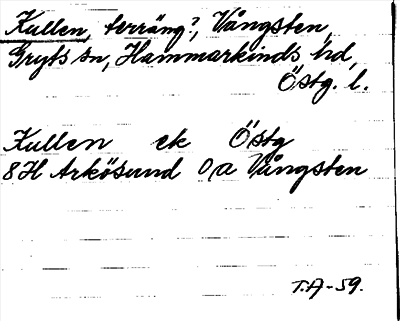 Kullen, terräng?, Vångsten,
Gryts sn, Hammarkinds hd,
Östg. l.
Kullen ek Östg
8H Arkösund 0a Vångsten
T.A-59.